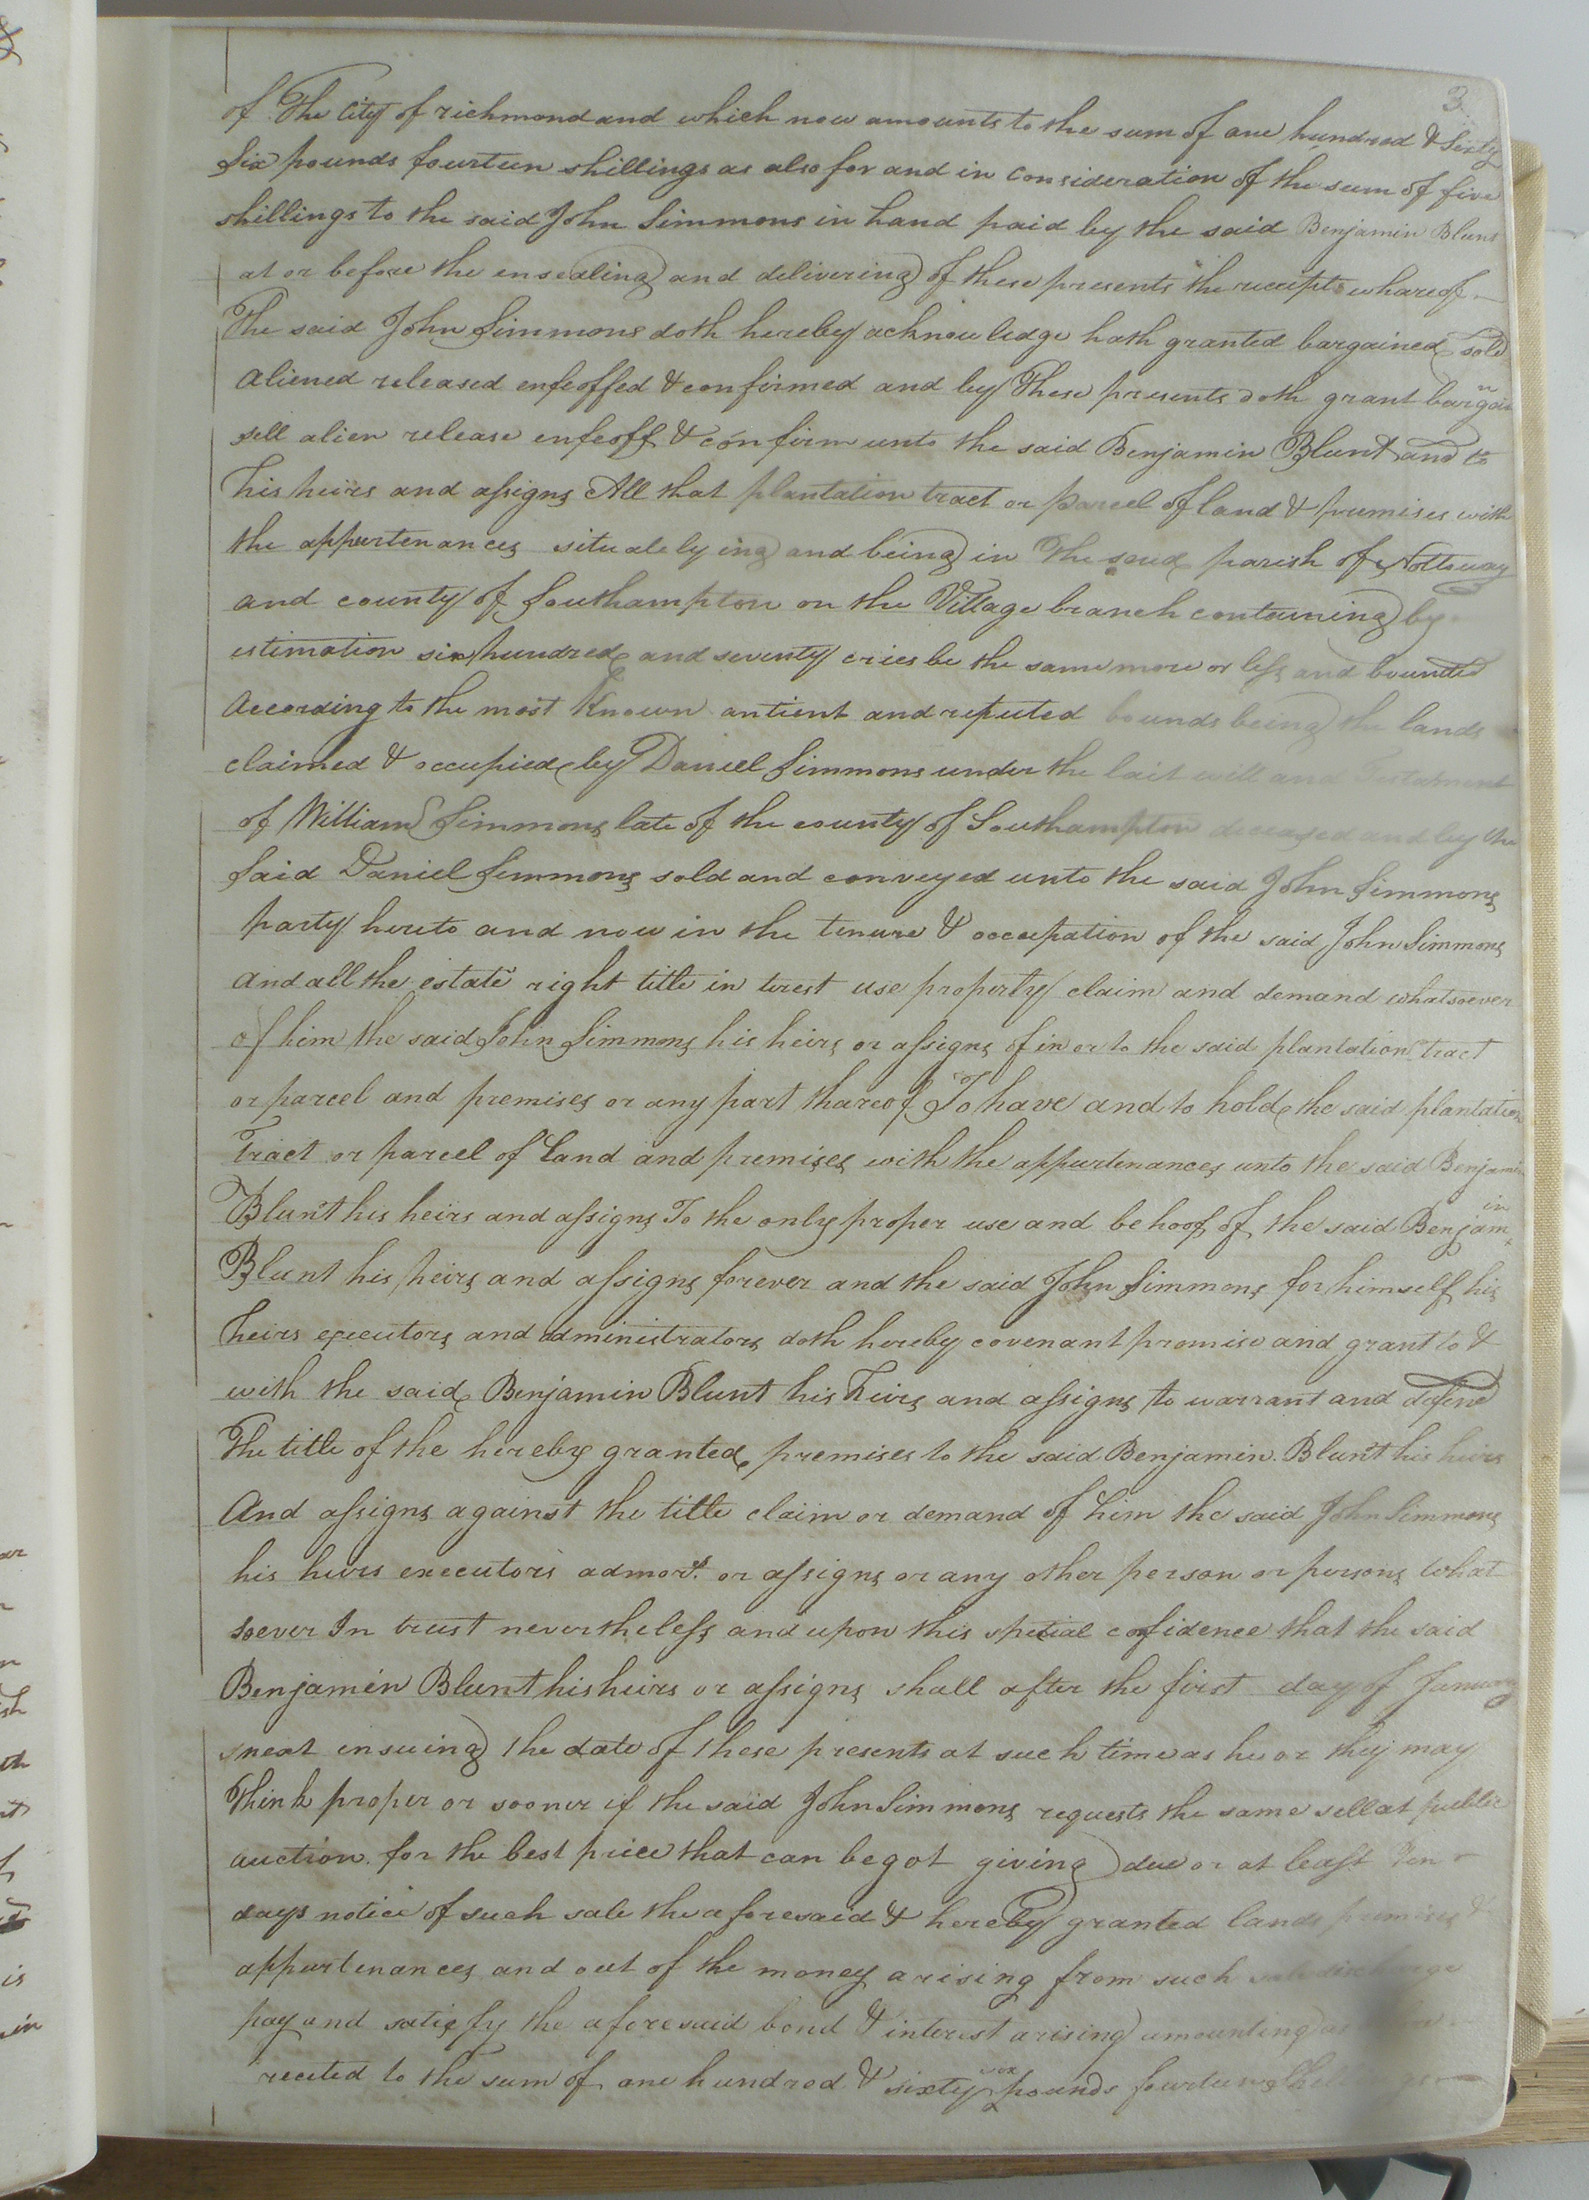 3
of The City of richmond and which now amounts to the sum of one hundred & Sixty
Six pounds fourteen shillings as also for and in Consideration of the sum of five
shillings to the said John Simmons in hand paid by the said Benjamin Blunt
at or before the ensealing and delivering of these presents the receipt whareof
The said John Simmons doth hereby acknowledge hath granted bargained sold
aliened released enfeoffed & confirmed and by These presents doth grant bargain
sell alien release enfeoff & confirm unto the said Benjamin Blunt and to
his heirs and assigns All that plantation tract or parcel of land & premises with
the appurtenances situate lying and being in The said parish of Nottoway
and county of Southampton on the Village branch contauning by
estimation six hundred and seventy cries be the same more or less and bounded
According to the most Known antient and reputed bounds being the lands
claimed & occupied by Daniel Simmons under the last will and Testament
of William Simmons late of the county of Southampton deceased and by the
Said Daniel Simmons sold and conveyed unto the said John Simmons
party hereto and now in the tenure & occupation of the said John Simmons
And all the estate right title in terest use property claim and demand whatsoever
of him the said John Simmons his heirs or assigns of in or to the said plantation tract
or parcel and premises or any part thareof To have and to hold the said plantation
Tract or parcel of Land and premises with the appurtenances unto the said Benjamin
Blunt his heirs and assigns To the only proper use and behoof of the said Benjamin
Blunt his heirs and assigns forever and the said John Simmons for himself his
heirs executors and administrators doth hereby covenant promise and grant to &
with the said Benjamin Blunt his heirs and assigns to warrant and defend
The title of the hereby granted premises to the said Benjamin Blunt his heirs
And assigns against the title claim or demand of him the said John Simmons
his heirs executors admors. or assigns or any other person or persons what
soever In trust nevertheless and upon this spetial confidence that the said
Benjamin Blunt his heirs or assigns shall after the first day of January
next ensuing the date of these presents at such time as he or they may
Think proper or sooner if the said John Simmons requests the same sell at public
auction for the best price that can be got giving due or at least Ten
days notice of such sale the aforesaid & hereby granted lands premises &
appurtenances and out of the money arising from such sale discharge
pay and satisfy the aforesaid bond & interest arising amounting as
recited to the sum of one hundred & sixty six pounds fourteen